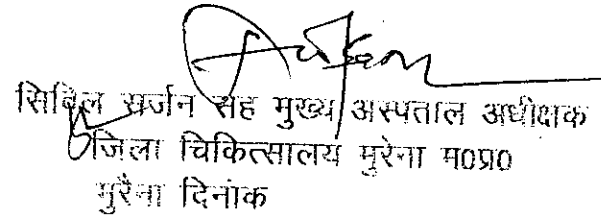 सिविल सर्जन सह मुख्य अस्पताल अधीक्षक
जिला चिकित्सालय मुरैना म0प्र0
मुरैना दिनांक